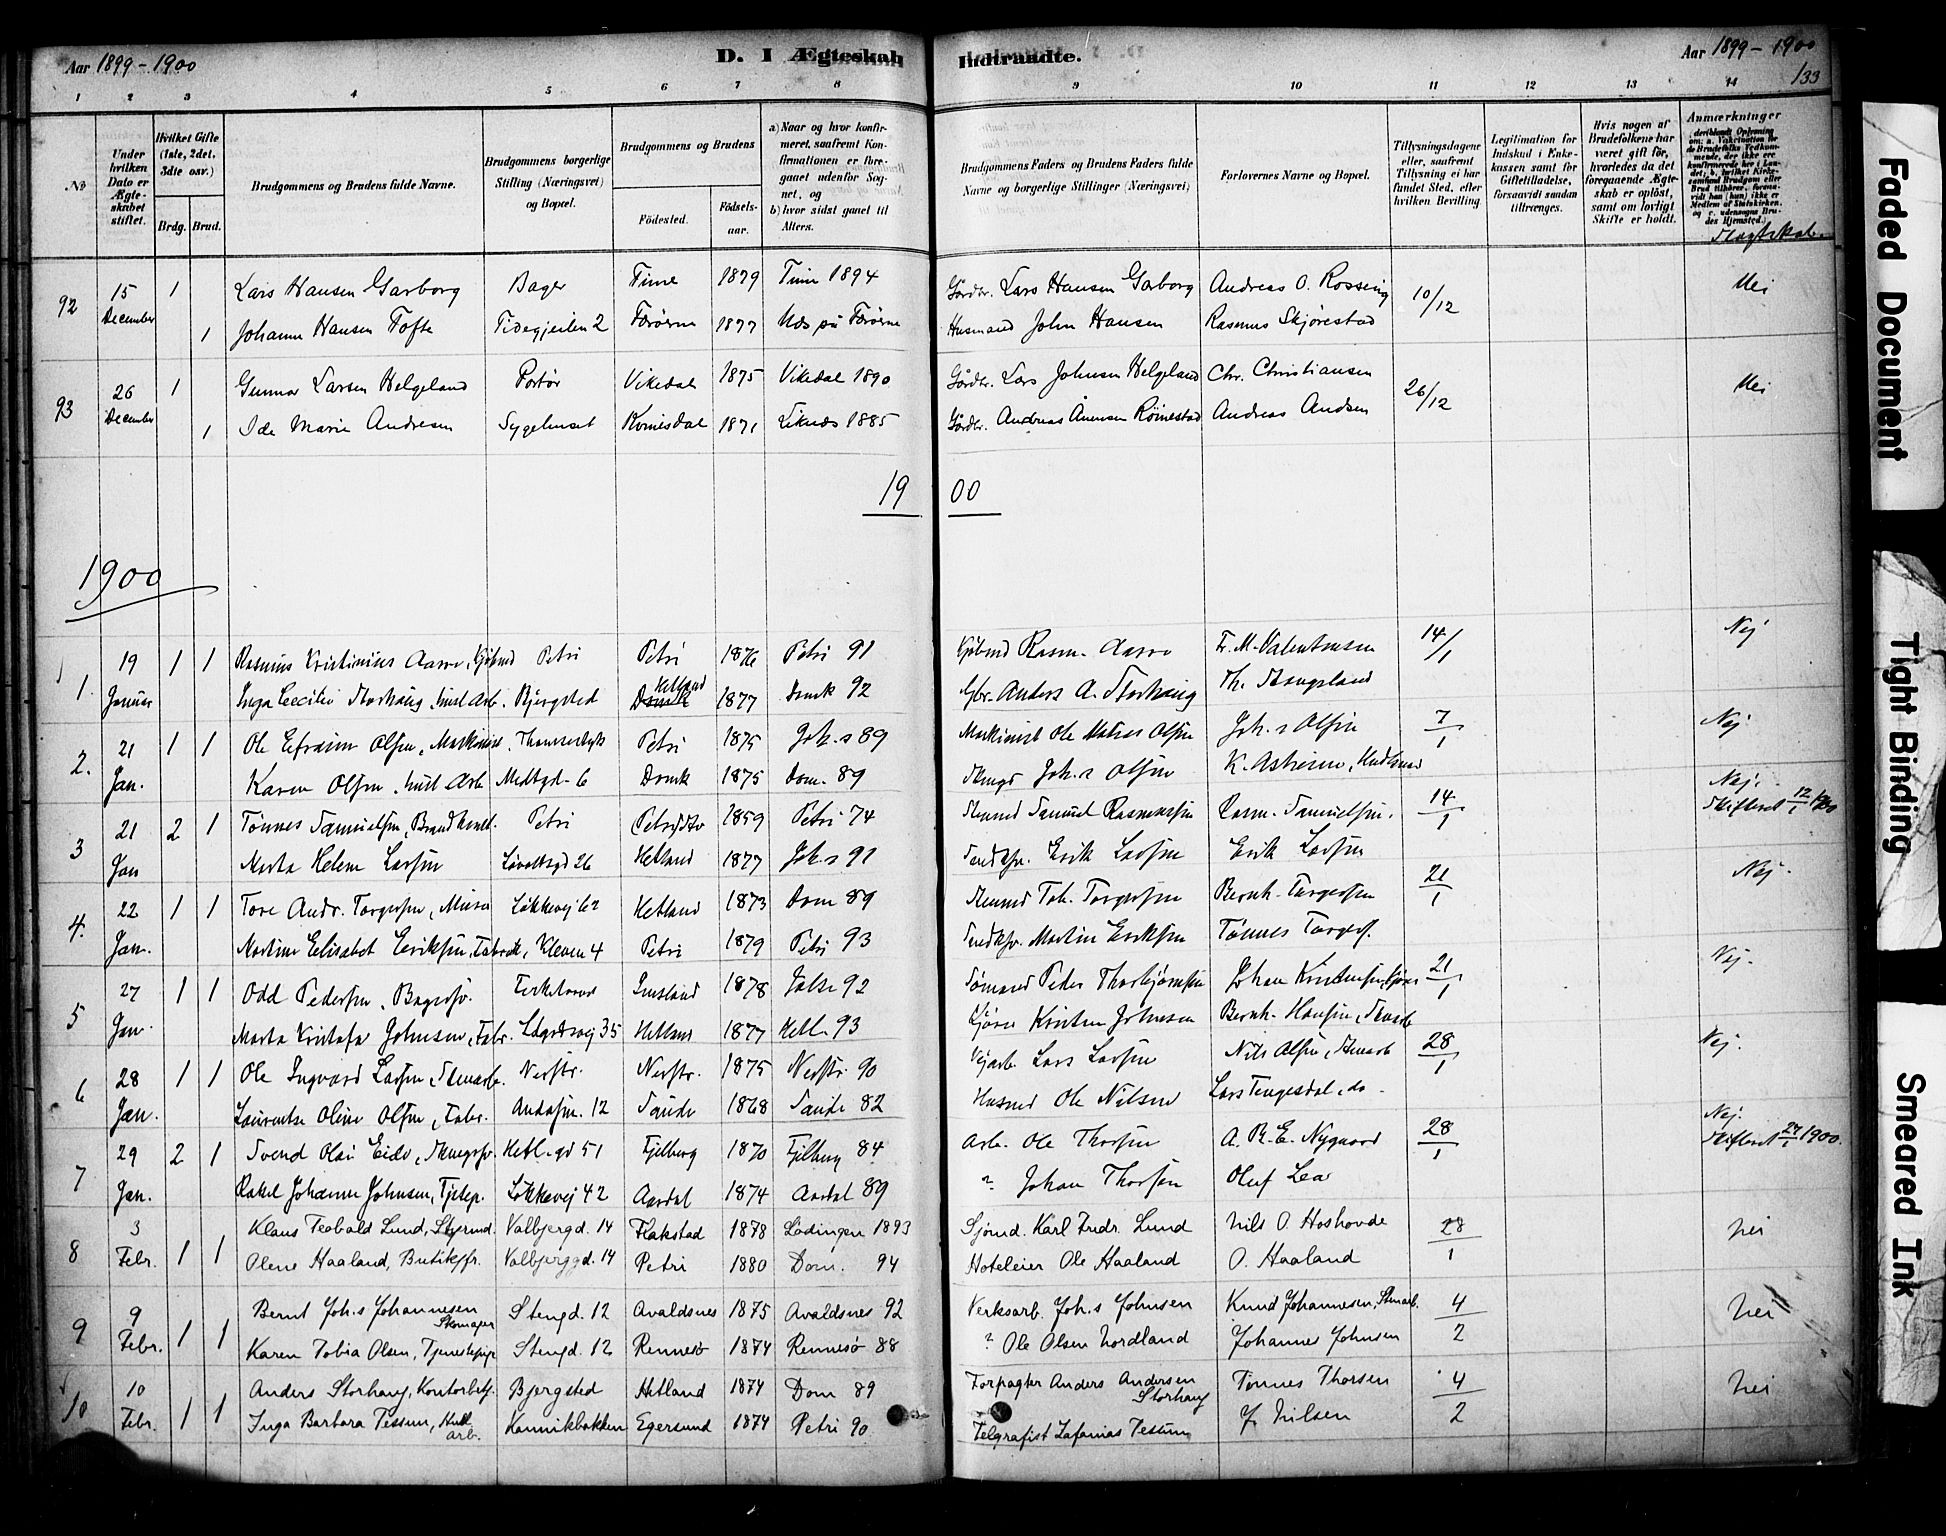 Aar 1899 - 1900
D. I Ægteskab Indtraadte.
Aar 1899 - 1900
133
1 2 3 4 5 6 7 8 9 10 11 12 13 14
No
Under hvilken Dato er Ægteskabet stiftet.
Hvilket Gifte (1ste, 2det, 3die osv.)
Brdg. Brud.
Brudgommens og Brudens fulde Navne.
Brudgommens borgerlige Stilling (Næringsvei) og Bopæl.
Brudgommens og Brudens
Födested.
Födselsaar.
a) Naar og hvor konfirmeret, saafremt Konfirmationen er foregaaet udenfor Sognet, og
b) hvor sidst gaaet til Alters.
Brudgommens Faders og Brudens Faders fulde Navne og borgerlige Stillinger (Næringsvei)
Forlovernes Navne og Bopæl.
Tillysningsdagene eller, saafremt Tillysning ei har fundet Sted, efter hvilken Bevilling.
Legitimation for Indskud i Enkekassen samt for Giftetilladelse, forsaavidt saadan tiltrænges.
Hvis nogen af Brudefolkene har været gift för, hvorledes da det foregaaende Ægteskab er oplöst, samt om lovligt Skifte er holdt.
Anmærkninger
Slægtskab.
92 15 December 1 Lars Hansen Garborg Bager Time 1879 Time 1894 Gårdbr. Lars Hansen Garborg Andreas O. Rosseng 10/12 Nei
1 Johanne Hansen Tofte Tidegjeilen 2 Færöerne 1877 Næs på Færöerne Husmand John Hansen Rasmus Skjörestad
93 26 December 1 Gunnar Larsen Helgeland Portör Vikedal 1875 Vikedal 1890 Gårdbr. Lars Johnsen Helgeland Chr. Christiansen 26/12 Nei
1 Ida Marie Andresen Sygehuset Kvinesdal 1871 Liknæs 1885 Gårdbr. Andreas Ånensen Röinestad Andreas Andsen
19 00
1900
1. 19 Januar 1 1 Rasmus Kristinius Aarre, Kjöbmd Petri Petri 1876 Petri 91 Kjöbmd Rasm. Aarre Fr. M. Valentinsen 14/1 Nej
Inga Cecilie Storhaug, huslArb. Bjergsted Hetland Domk 1877 Domk 92 Gbr. Anders A. Storhaug Th. Stangeland
2. 21 Jan. 1 1 Ole Efraim Olsen, Maskinist Petri 1875 Joh.s 89 Maskinist Ole Olsen Joh.s Olsen 7/1 Nej
Karen Olsen, husl Arb Medbgd. 6 Domk 1875 Dom. 89 Joh.s Olsen
3 21 Jan 2 1 Tönnes Samuelsen, Brandkonst. Petri 1859 Petri 74 Stenmd Samuel Rasmussen Rasm. Samuelsen. 14/1 Nej. Skifteret 12/1 1900
Marta Helene Larsen Lövoldsgd 26 Hetland 1877 Joh.s 91 Erik Larsen Erik Larsen
4. 22 Jan. 1 1 Tore Andr. Torgersen, Murer Lökkevej 62 Hetland 1873 Dom 89 Stenmd Toh. Torgersen Bernh. Torgersen 21/1 Nej.
Martine Elisabet Eriksen, Fabrark, Kleven 4 Petri 1879 Petri 93 Martin Eriksen Tönnes Torgers.
5 27 Jan. 1 1 Odd Pedersen, Bagersv. Imsland 1878 Jelse 92 Tömmermd Peder Thorbjörnsen Johan Kristensen, 21/1 Nej.
Marta Kristofa Johnsen, Fabr. Ldgårdsvej 35 Hetland 1877 Hetl. 93 Kjörer Kristen Johnsen Bernh. Hansen, Stenarb
6 28 Jan. 1 1 Ole Ingvard Larsen, Stenarb. Nerstr. Nerstr. 1875 Nerstr. 90 Vejarb Lars Larsen Nils Olsen, Stenarb 28/1 Nej.
Laurentse Oline Olsen, Fabr. Andasm. 12 Sande 1868 Sande 82 Husmd Ole Nilsen Lars Tengesdal, do.
7 29 Jan. 2 1 Svend Olai Eide, Skrogsv. Hetl.gd 51 Fjelberg 1870 Fjelberg 84 Arb. Ole Thorsen A. B. E. Nygaard 28/1 Nej. Skifteret 27/1 1900.
Rakel Johanne Johnsen, Tjttep. Lökkevej 42 Aardal 1874 Aardal 89 ? Johan Thorsen Oluf Lea
8 3 Febr. 1 1 Klaus Teobald Lund, Styrmd. Valbjergd. 14 Flakstad 1878 Lödingen 1893 Sjömd. Karl Indr. Lund Nils O. Hoshovde 28/1 nei
Olene Haaland, Butikfr. Valbjerggd. 14 Petri 1880 Dom. 94 Hoteleier Ole Haaland O. Haaland
9 9 Febr. 1 1 Bernt Joh.s Johannesen Skomager Stengd. 12 Avaldsnes 1875 Avaldsnes 92 Verksarb. Joh.s Johnsen Knud Johannesen, Stenarb. 4/2 nei
Karen Tobia Olsen, Tjenestepige Stengd. 12 Rennesö 1874 Rennesö 88 ? Ole Olsen Nordland Johannes Johnsen
10 10 Febr. 1 1 Anders Storhaug, Kontorbetj. Bjergsted Hetland 1874 Dom 89 Forpagter Anders Andersen Storhaug Tönnes Thorsen 4/2 nei
Inga Barbara Tessum, Husl. arb. Kannikbakken Egersund 1874 Petri 90 Telgrafist Zafanias Tessum J. Nilsen
Faded Document
Tight Binding
Smeared Ink